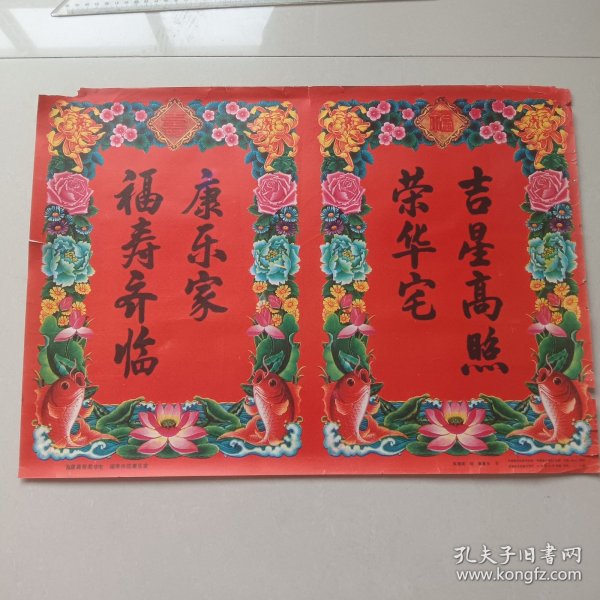 吉星高照
荣华宅
福寿齐临
康乐家
福
孔夫子旧书网
www.kongfz.com